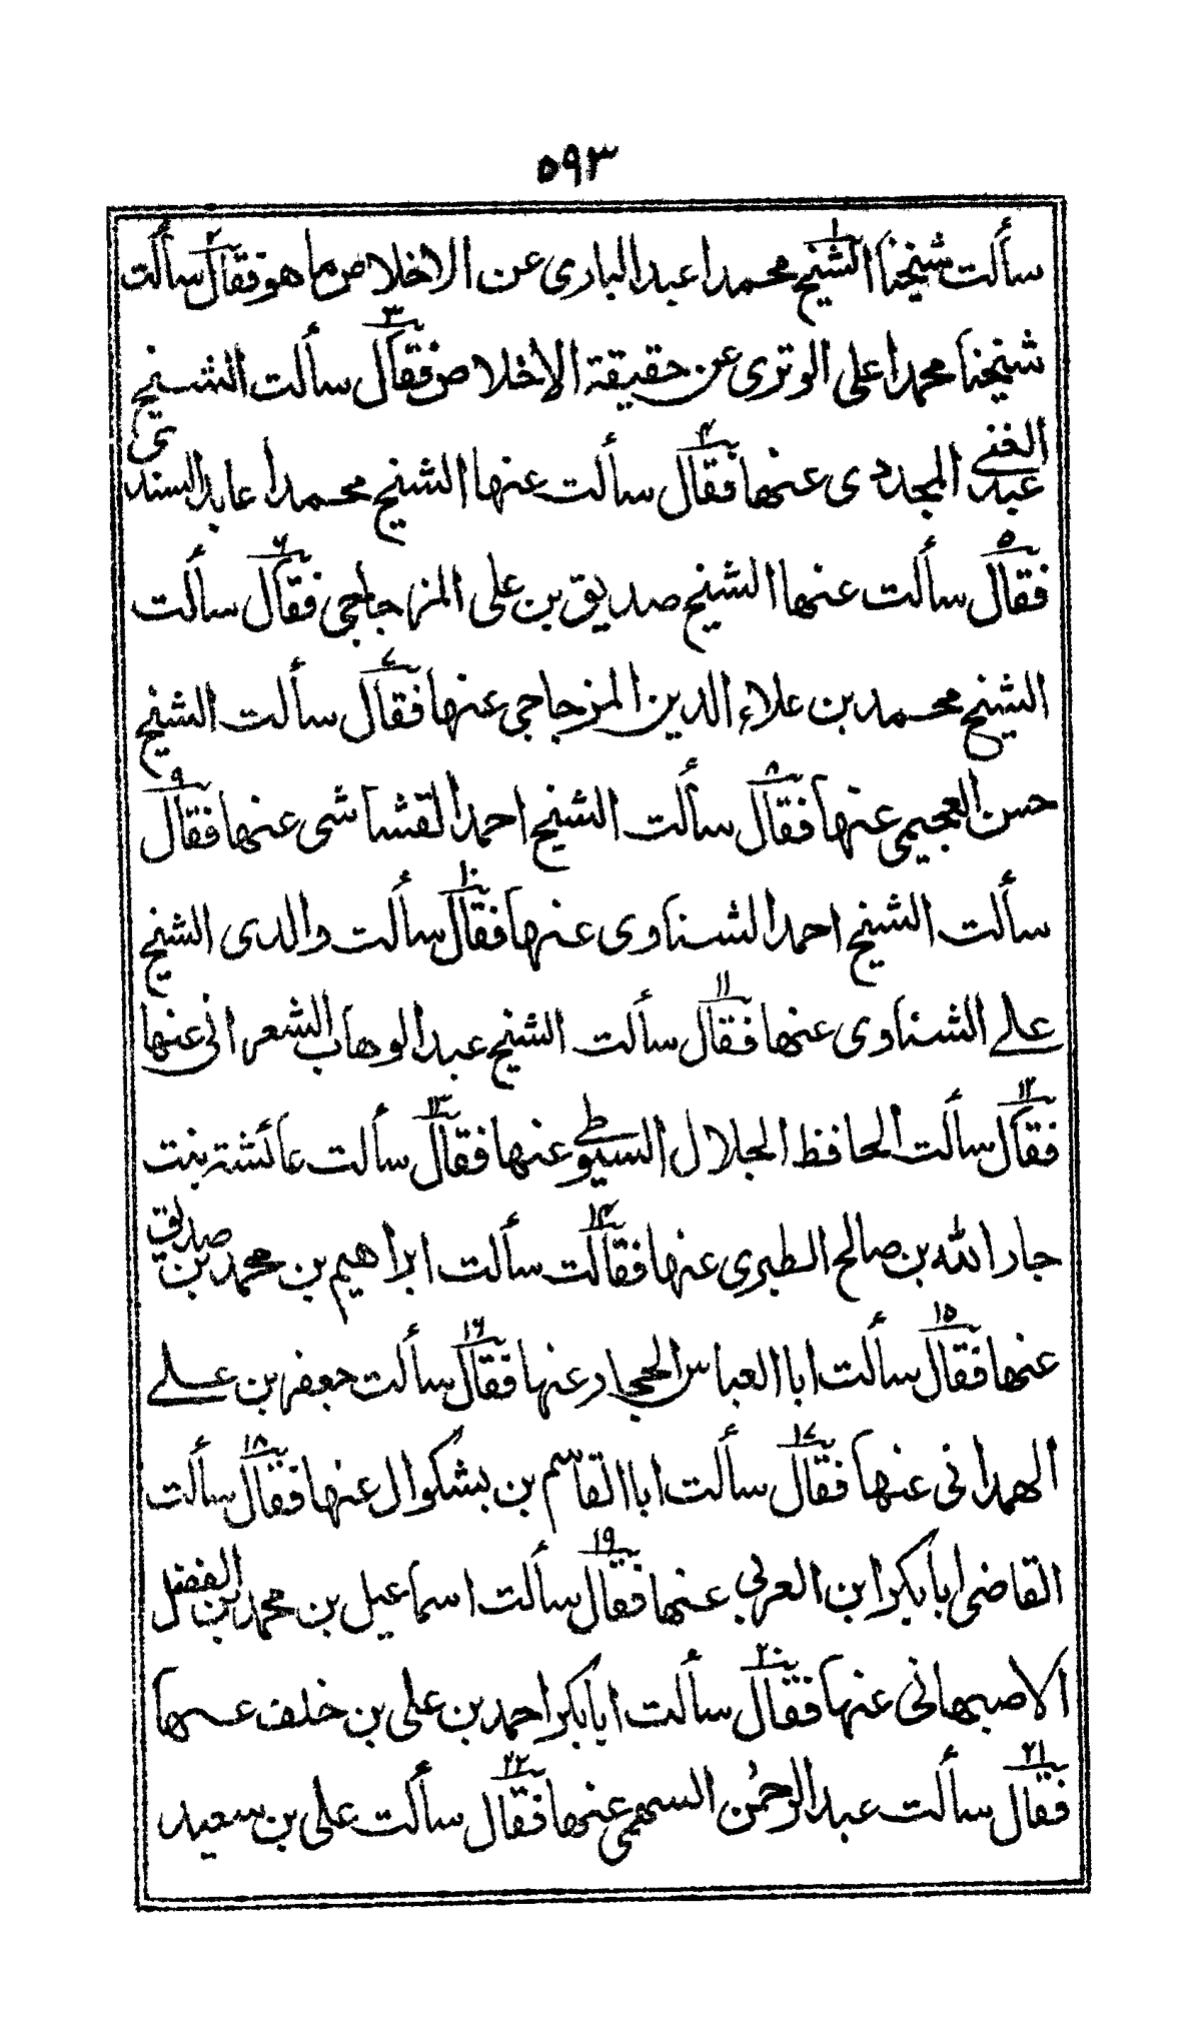 ٥٩٣
سألت شيخنا الشيخ محمدا عبد البارى عن الاخلاص ما هو فقال سألت
شيخنا محمدا على الوترى عن حقيقة الاخلاص فقال سألت الشيخ
عبد الغنے المجددى عنها فقال سألت عنها الشيخ محمدا عابد السندى
فقال سألت عنها الشيخ صديق بن على المزجاجى فقال سألت
الشيخ محمد بن علاء الدين المزجاجى عنها فقال سألت الشيخ
حسن العجيمى عنها فقال سألت الشيخ احمد القشاشى عنها فقال
سألت الشيخ احمد الشناوى عنها فقال سألت والدى الشيخ
علے الشناوى عنها فقال سألت الشيخ عبد الوهاب الشعرانى عنها
فقال سألت الحافظ الجلال السيوطے عنها فقال سألت عائشة بنت
جار الله بن صالح الطبرى عنها فقالت سألت ابراهيم بن محمد بن صديق
عنها فقال سألت ابا العباس الحجار عنها فقال سألت جعفر بن علے
الهمدانى عنها فقال سألت ابا القاسم بن بشكوال عنها فقال سألت
القاضى ابا بكر ابن العربى عنها فقال سألت اسماعيل بن محمد بن الفضل
الاصبهانى عنها فقال سألت ابا بكر احمد بن على بن خلف عنها
فقال سألت عبد الرحمن السهمى عنها فقال سألت على بن سعيد